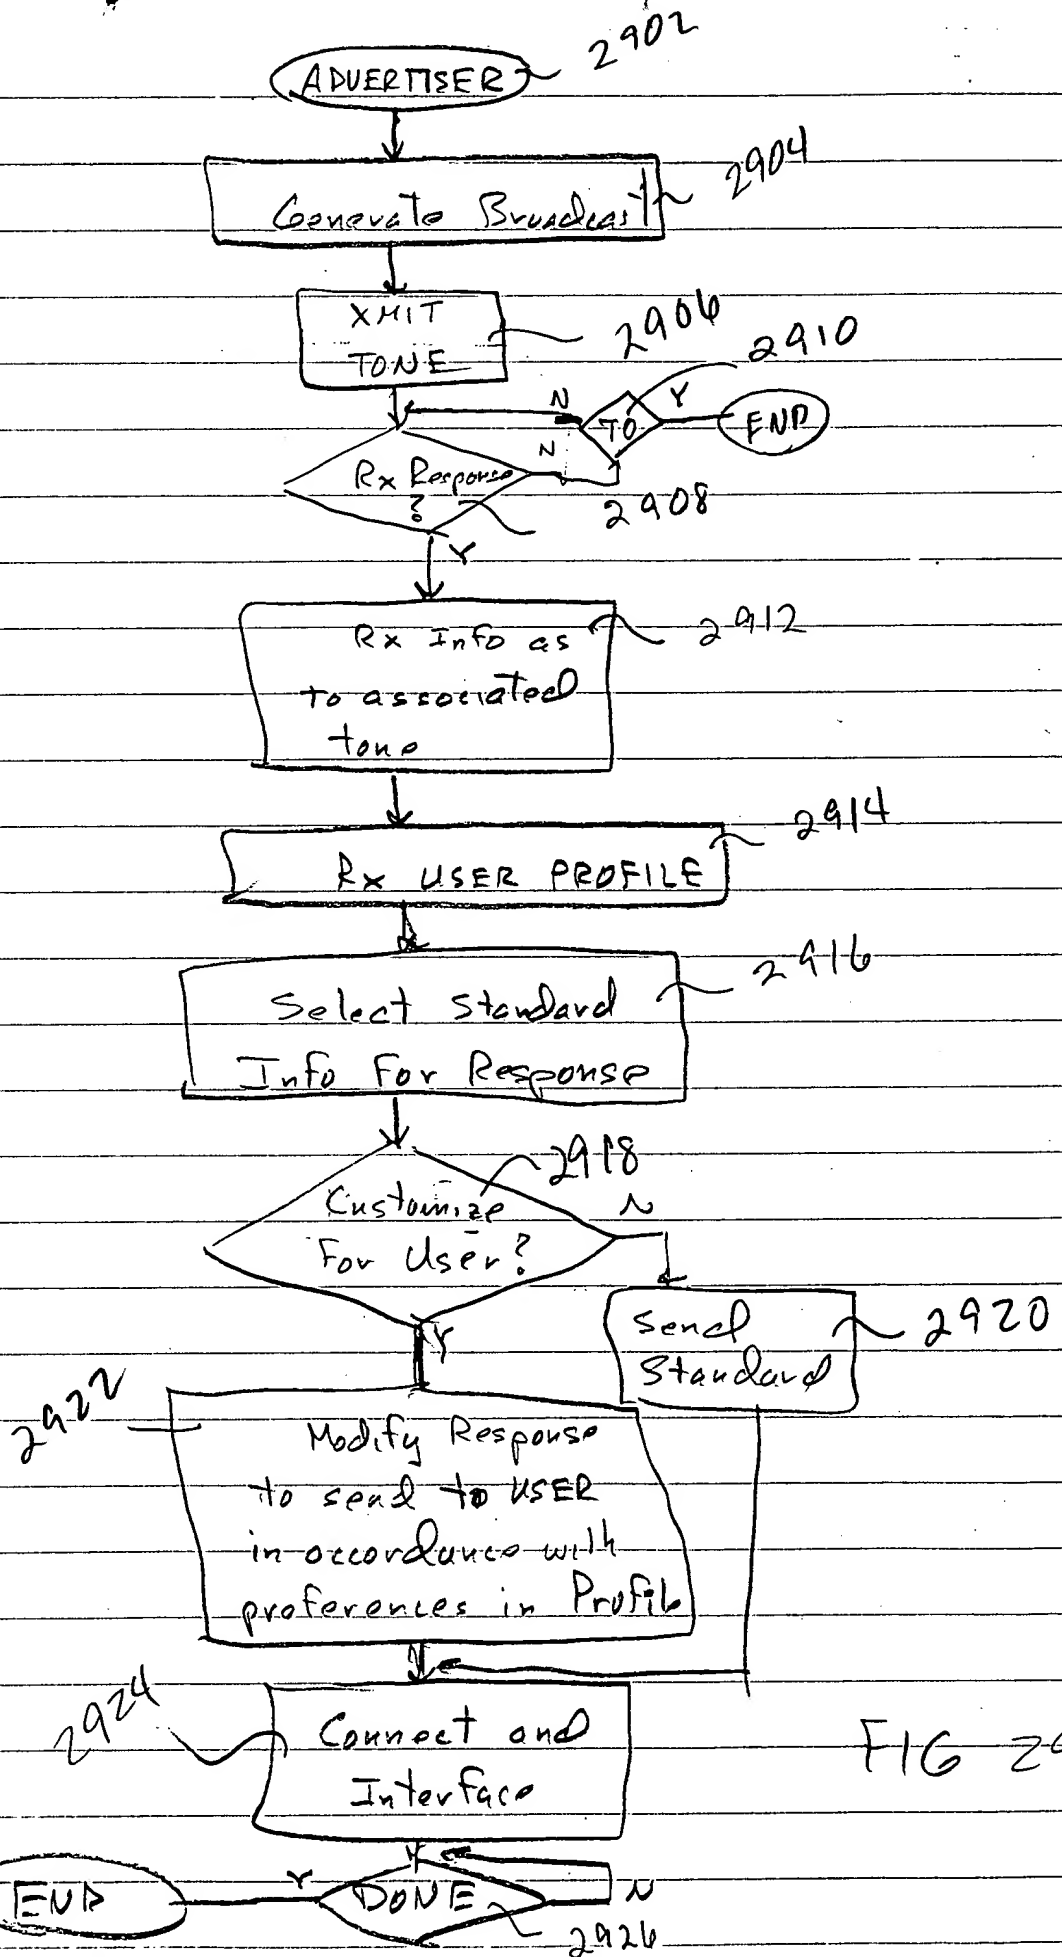 ADVERTISER 2902
Generate Broadcast 2904
XMIT
TONE 2906
N TO Y END 2910
Rx Response
? N 2908
Y
Rx Info as
to associated
tone 2912
Rx USER PROFILE 2914
Select Standard
Info For Response 2916
Customize
For User? 2918
N
Y
Send
Standard 2920
2922
Modify Response
to send to USER
in accordance with
preferences in Profile
2924
Connect and
Interface
FIG 29
END Y DONE N
2926